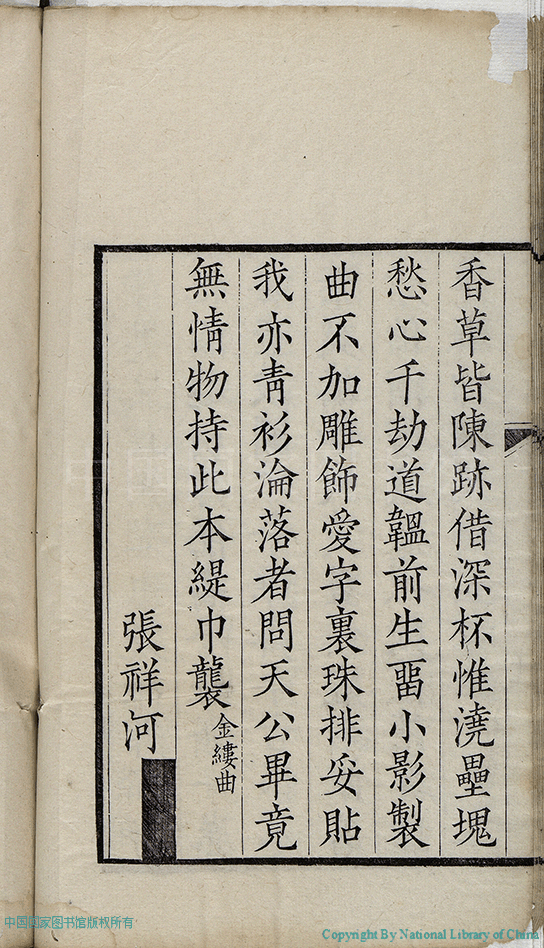 香草皆陳跡借深杯惟澆壘塊
愁心千劫道韞前生畱小影製
曲不加雕飾愛字裏珠排妥貼
我亦青衫淪落者問天公畢竟
無情物持此本緹巾襲金縷曲
張祥河
中国国家图书馆版权所有
Copyright By National Library of China